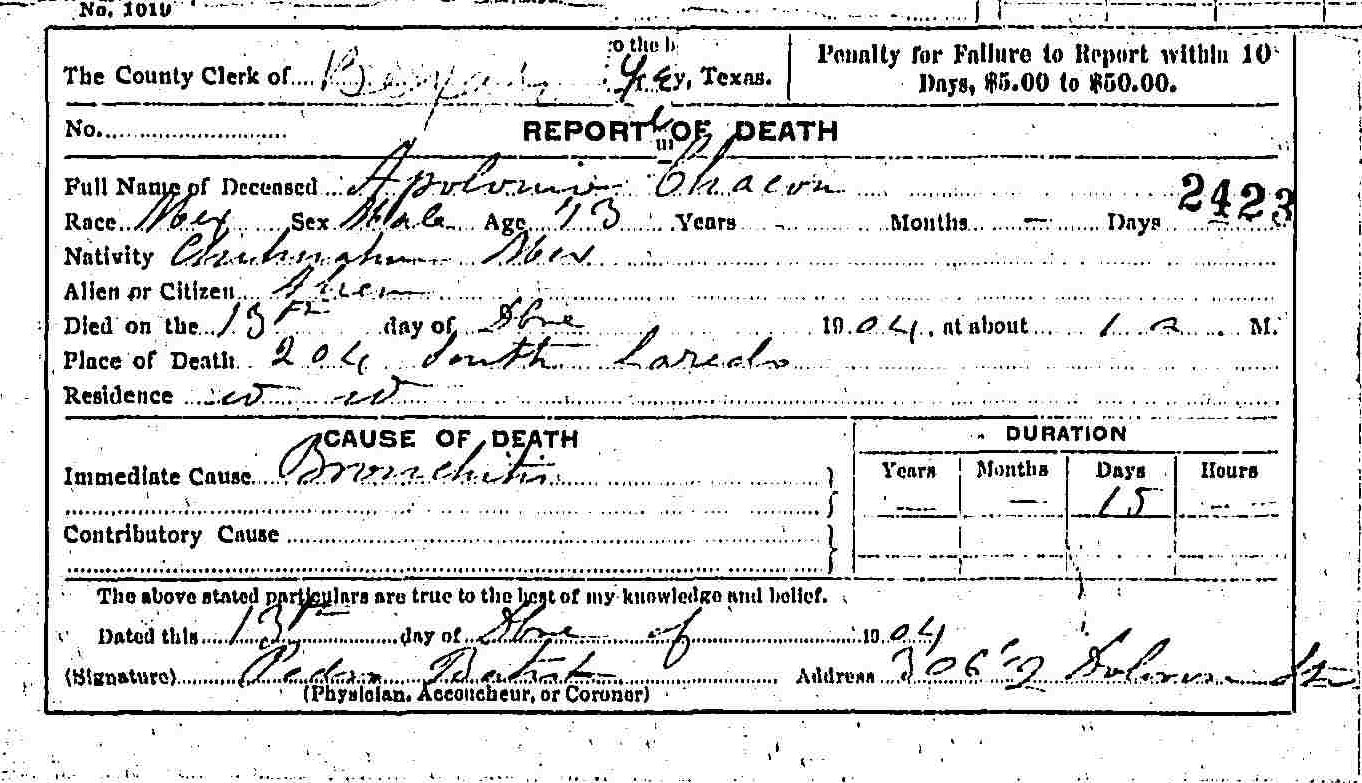 No. 1019
The County Clerk of Bexar y, Texas.
Penalty for Failure to Report within 10
Days, $5.00 to $50.00.
No.
REPORT OF DEATH
Full Name of Deceased Apolonio Chacon
2423
Race Mex Sex Male Age 73 Years Months — Days
Nativity Chihuahua Mex
Alien or Citizen Alien
Died on the 13th day of Dbre 1904, at about 1 a. M.
Place of Death 204 South Laredo
Residence
CAUSE OF DEATH
DURATION
Immediate Cause Bronchitis
Years Months Days Hours
— — 15 —
Contributory Cause
The above stated particulars are true to the best of my knowledge and belief.
Dated this 13th day of Dbre of 1904
(Signature) Pedro Address St
(Physician, Accoucheur, or Coroner)